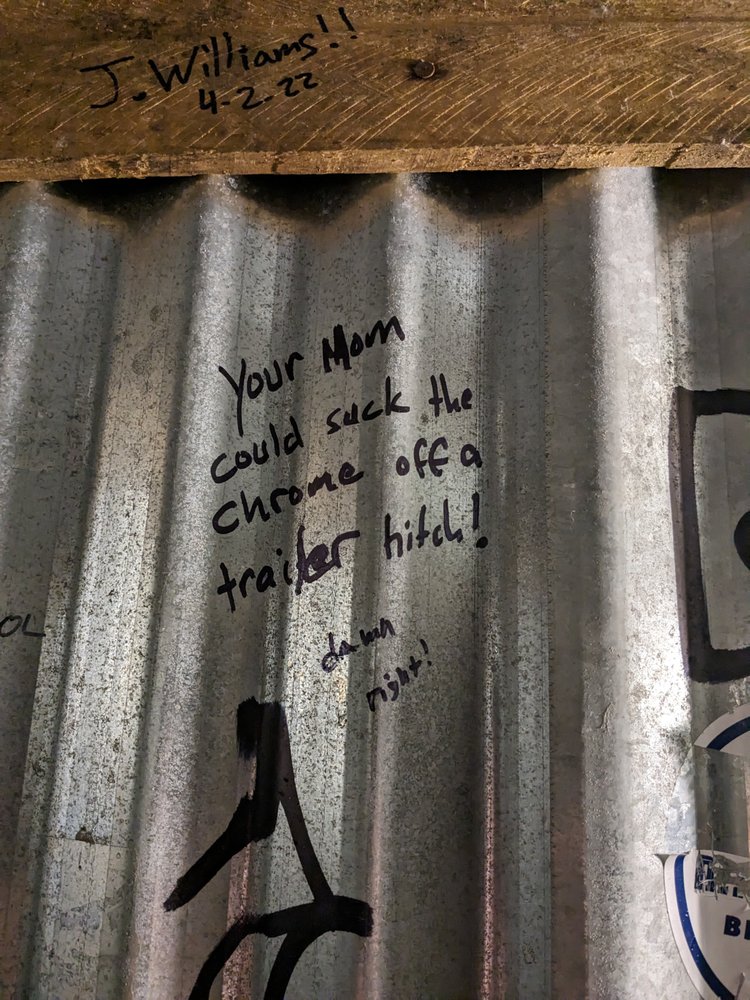 J. Williams!!
4-2-22
Your Mom
could suck the
chrome off a
trailer hitch!
damn
right!
OL